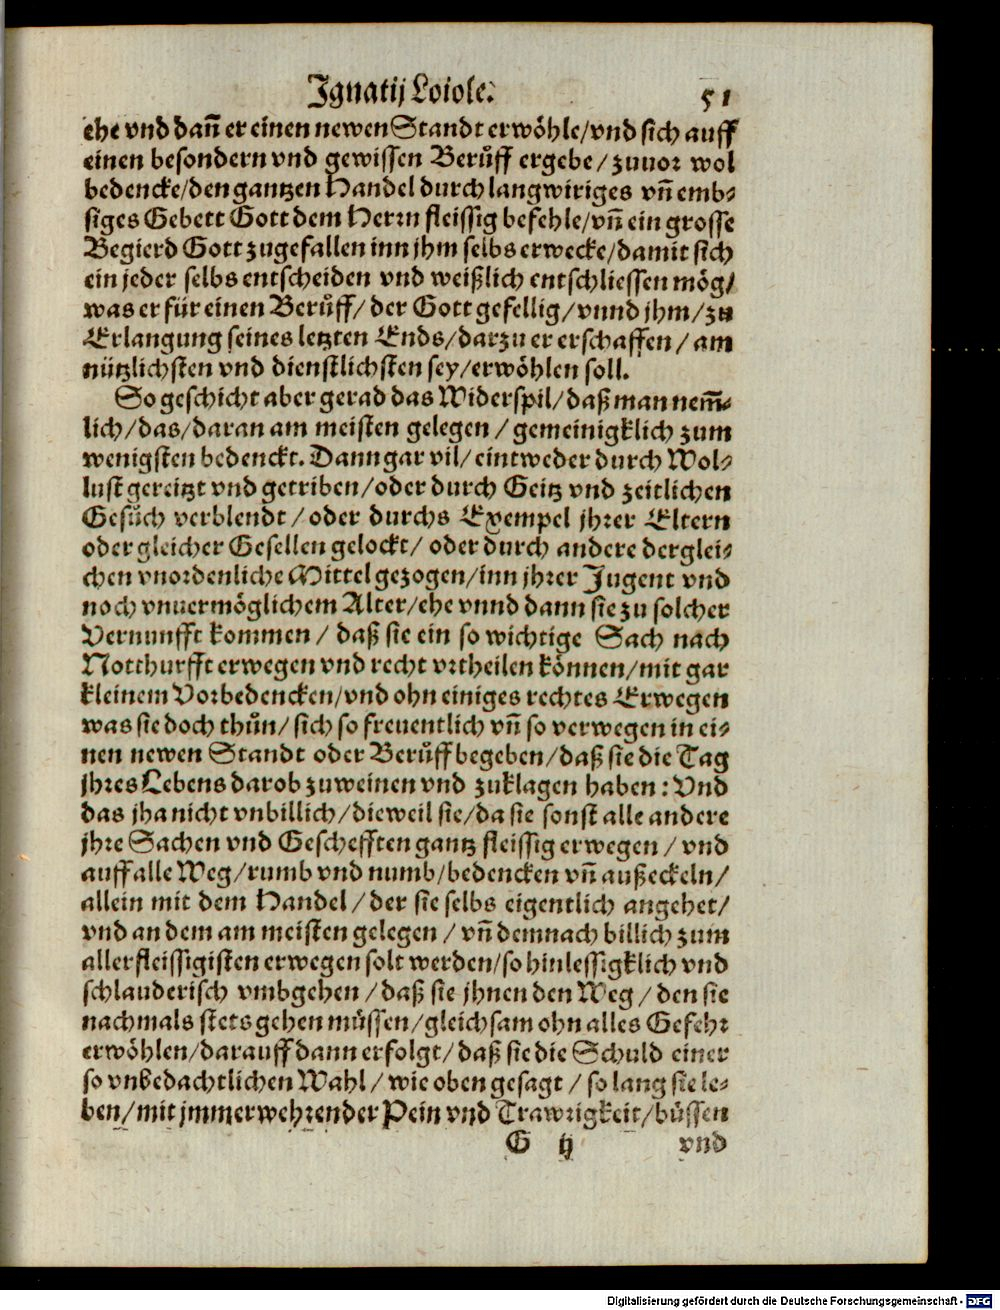 Ignatij Loiole. 51
ehe vnd dañ er einen newen Standt erwöhle/vnd sich auff
einen besondern vnd gewissen Berůff ergebe/zuuor wol
bedencke/den gantzen Handel durch langwiriges vñ emb-
siges Gebett Gott dem Herrn fleissig befehle/vñ ein grosse
Begierd Gott zugefallen inn jhm selbs erwecke/damit sich
ein jeder selbs entscheiden vnd weißlich entschliessen mög/
was er für einen Berůff/ der Gott gefellig/vnnd jhm/zu
Erlangung seines letzten Ends/darzu er erschaffen/ am
nützlichsten vnd dienstlichsten sey/erwöhlen soll.
So geschicht aber gerad das Widerspil/daß man nem̃-
lich/das/daran am meisten gelegen/ gemeinigklich zum
wenigsten bedenckt. Dann gar vil/ eintweder durch Wol-
lust gereitzt vnd getriben/oder durch Geitz vnd zeitlichen
Gesůch verblendt/ oder durchs Exempel jhrer Eltern
oder gleicher Gesellen gelockt/ oder durch andere derglei-
chen vnordenliche Mittel gezogen/inn jhrer Jugent vnd
noch vnuermöglichem Alter/ehe vnnd dann sie zu solcher
Vernunfft kommen/ daß sie ein so wichtige Sach nach
Notthurfft erwegen vnd recht vrtheilen können/mit gar
kleinem Vorbedencken/vnd ohn einiges rechtes Erwegen
was sie doch thůn/ sich so freuentlich vñ so verwegen in ei-
nen newen Standt oder Berůff begeben/daß sie die Tag
jhres Lebens darob zuweinen vnd zuklagen haben: Vnd
das jha nicht vnbillich/dieweil sie/da sie sonst alle andere
jhre Sachen vnd Geschefften gantz fleissig erwegen/ vnd
auff alle Weg/rumb vnd numb/bedencken vñ außeckeln/
allein mit dem Handel/ der sie selbs eigentlich angehet/
vnd an dem am meisten gelegen/ vñ demnach billich zum
allerfleissigisten erwegen solt werden/so hinlessigklich vnd
schlauderisch vmbgehen/daß sie jhnen den Weg/ den sie
nachmals stets gehen müssen/gleichsam ohn alles Gefehr
erwöhlen/darauff dann erfolgt/daß sie die Schuld einer
so vnbedachtlichen Wahl/ wie oben gesagt/ so lang sie le-
ben/mit jmmerwehrender Pein vnd Trawrigkeit/büssen
G ij vnd
Digitalisierung gefördert durch die Deutsche Forschungsgemeinschaft - DFG